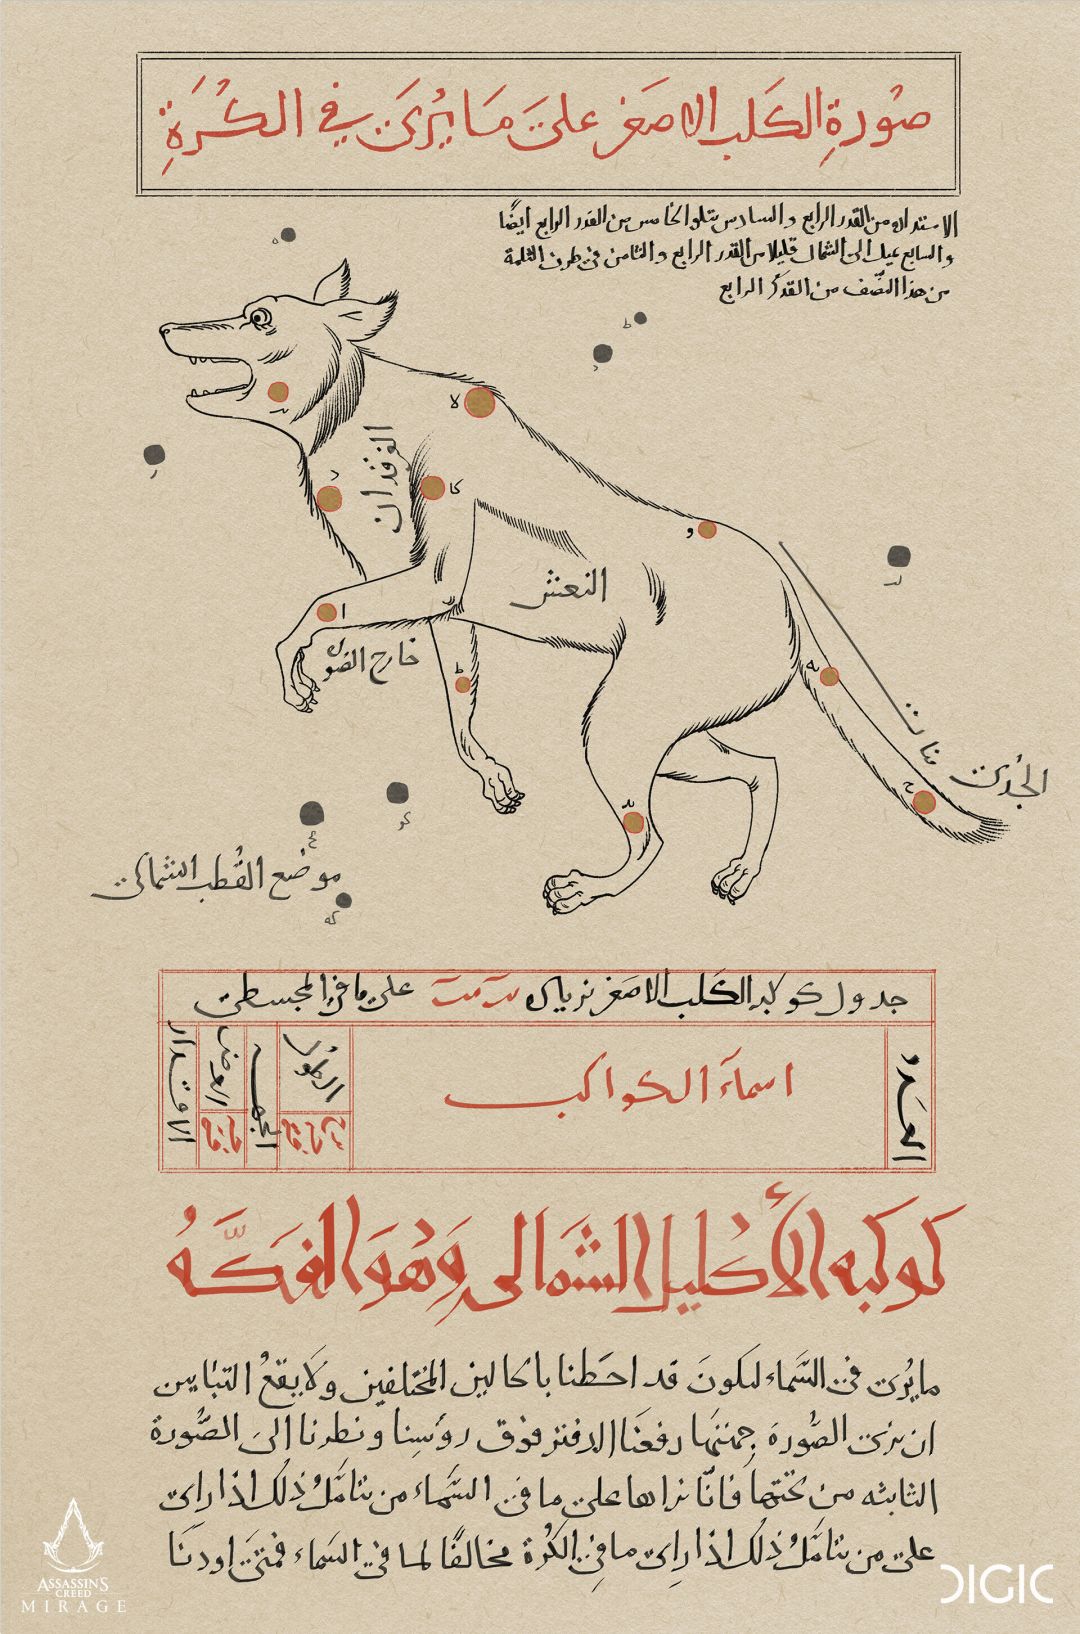 صُورةِ الكَلب الاصغَر علىَ مَا يُرَى في الكُرَةِ
الاستداره من القدر الرابع والسادس يتلو الخامس من القدر الرابع ايضًا
والسابع يميل الى الشمال قليلا من القدر الرابع والثامن في طرف الثلمة
من هذا النصّف من القدَر الرابع
الفرقدان
النعش
خارج الصوره
بنات
الجُدَى
موضع القُطب الشمالى
جدول كوكبه الكَلب الاصغر بزياده على ما في المجسطى
العَدد
اسمآء الكواكب
الطوُل
الجهــه
العرض
الاقـدار
كَوكَبه الأكليل الشمَالى وَهُوَ الفَكَّـهُ
ما يُرىَ في السَّماء لنكونَ قد احَطنا باكالين المختلفين ولا يقعُ التبايين
ان نرىَ الصُّورة بجمتها رفعَنَا الدفتر فوق رؤسِنا ونطرنا الىَ الصُّورة
الثانيه من تحتها فانّا نراها على ما في السَّماء من يتأمَّل ذلك اذا راىَ
على من يتامَّل ذلك اذا راىَ ما في الكُرة مخالفًا لما في السَماء فمتىَ اردنَا
ASSASSIN'S
CREED
MIRAGE
DIGIC